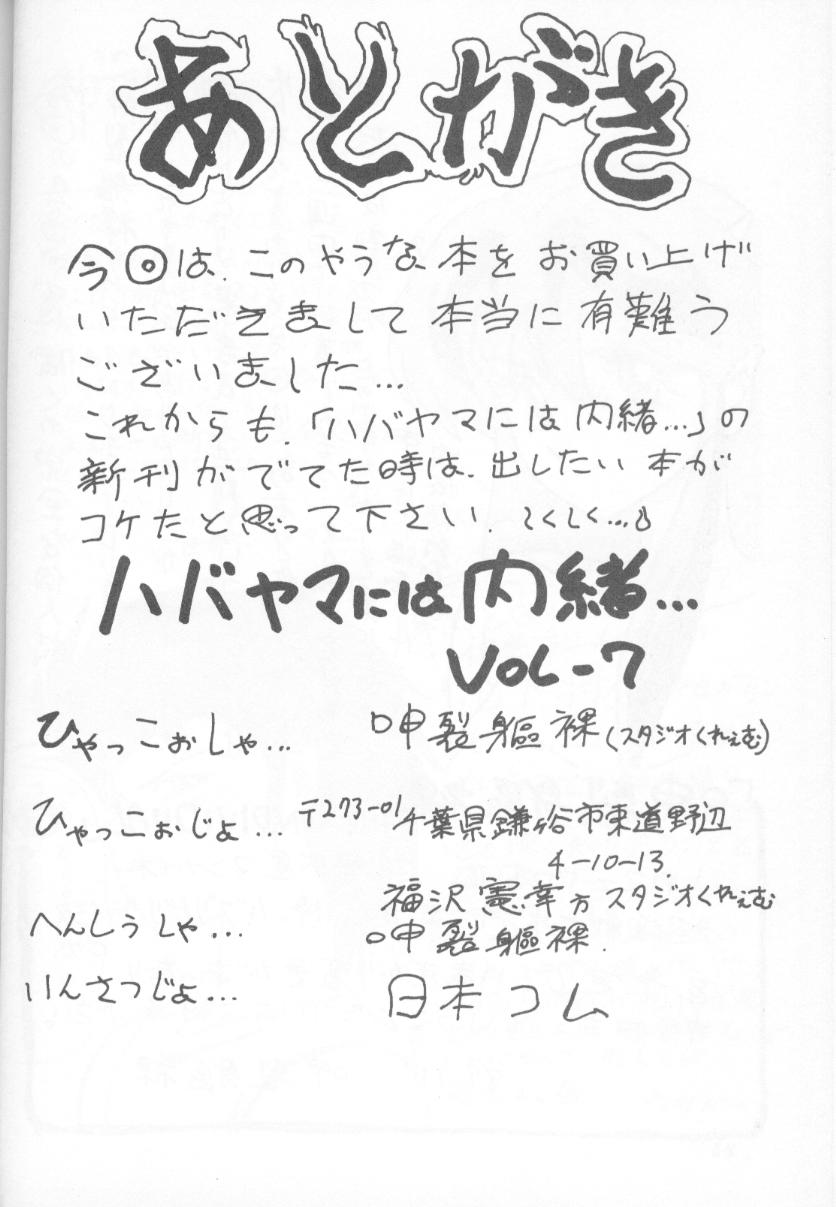 あとがき
今回は、このやうな本をお買い上げ
いただきまして本当に有難う
ございました…
これからも、「ハバヤマには内緒…」の
新刊がでてた時は、出したい本が
コケたと思って下さい、しくしく…
ハバヤマには内緒…
VOL-7
ひゃっこぉしゃ… 呻裂軀裸(スタジオくれぇむ)
ひゃっこぉじょ… 〒273-01 千葉県鎌ヶ谷市東道野辺
4-10-13.
福沢憲幸方 スタジオくれぇむ
へんしうしゃ… 呻裂軀裸.
いんさつじょ… 日本コム